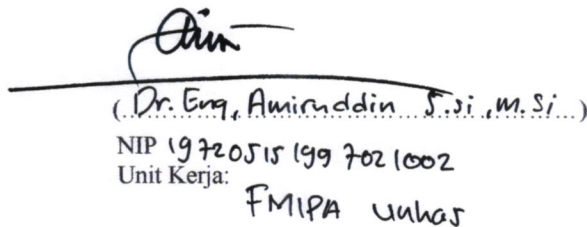 (Dr. Eng, Amiruddin S.si, M.Si)
NIP 197205151997021002
Unit Kerja:
FMIPA Unhas